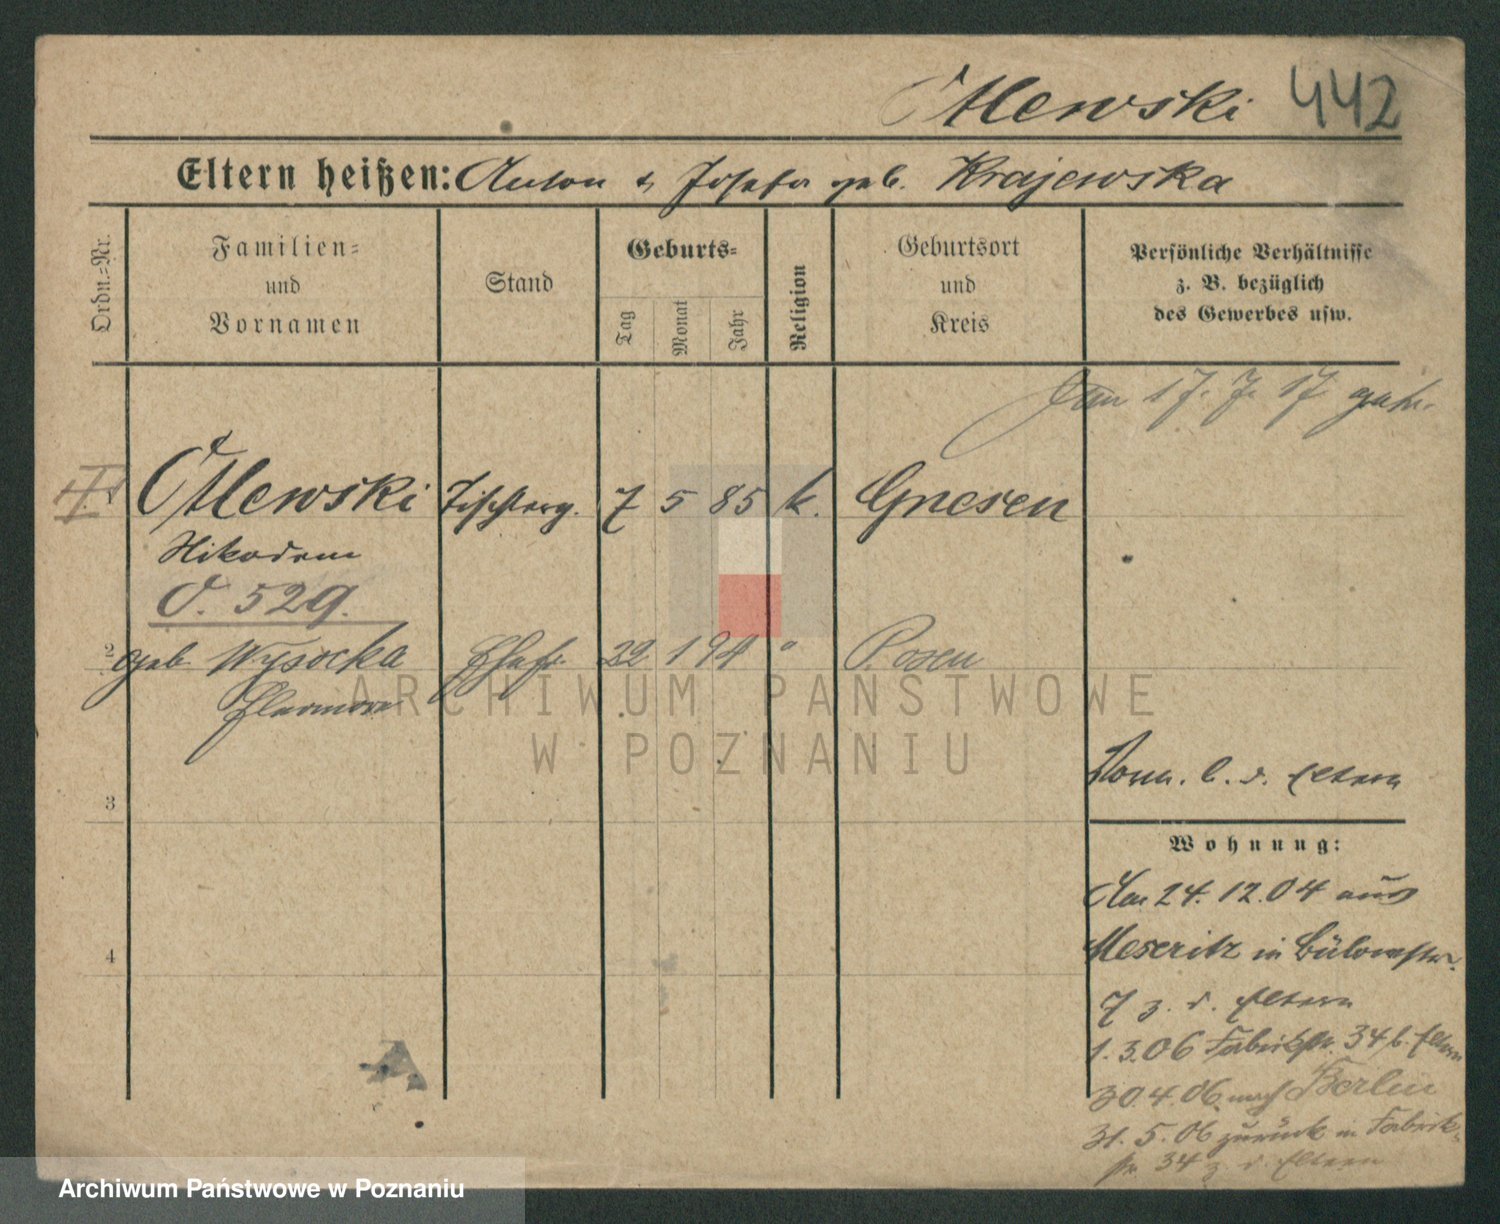 Otlewski 442
Eltern heißen: Anton & Josefa geb. Krajewska
Ordn.-Nr.
Familien-
und
Vornamen
Stand
Geburts-
Tag
Monat
Jahr
Religion
Geburtsort
und
Kreis
Persönliche Verhältnisse
z. B. bezüglich
des Gewerbes usw.
17. 7. 17
Otlewski Tischlerg. 7 5 85 k. Gnesen
Nikodem
O. 529.
2 geb. Wysocka Ehefr. 22 1 94 " Posen
Eleonora
ARCHIWUM PAŃSTWOWE
W POZNANIU
3
b. d. Eltern
Wohnung:
Am 24. 12. 04 aus
Meseritz in Bülowstr.
7 z. d. Eltern
1. 3. 06 Fabrikstr. 34 b. Eltern
4
30. 4. 06 nach Berlin
31. 5. 06 zurück in Fabrik-
str. 34 z. d. Eltern
Archiwum Państwowe w Poznaniu